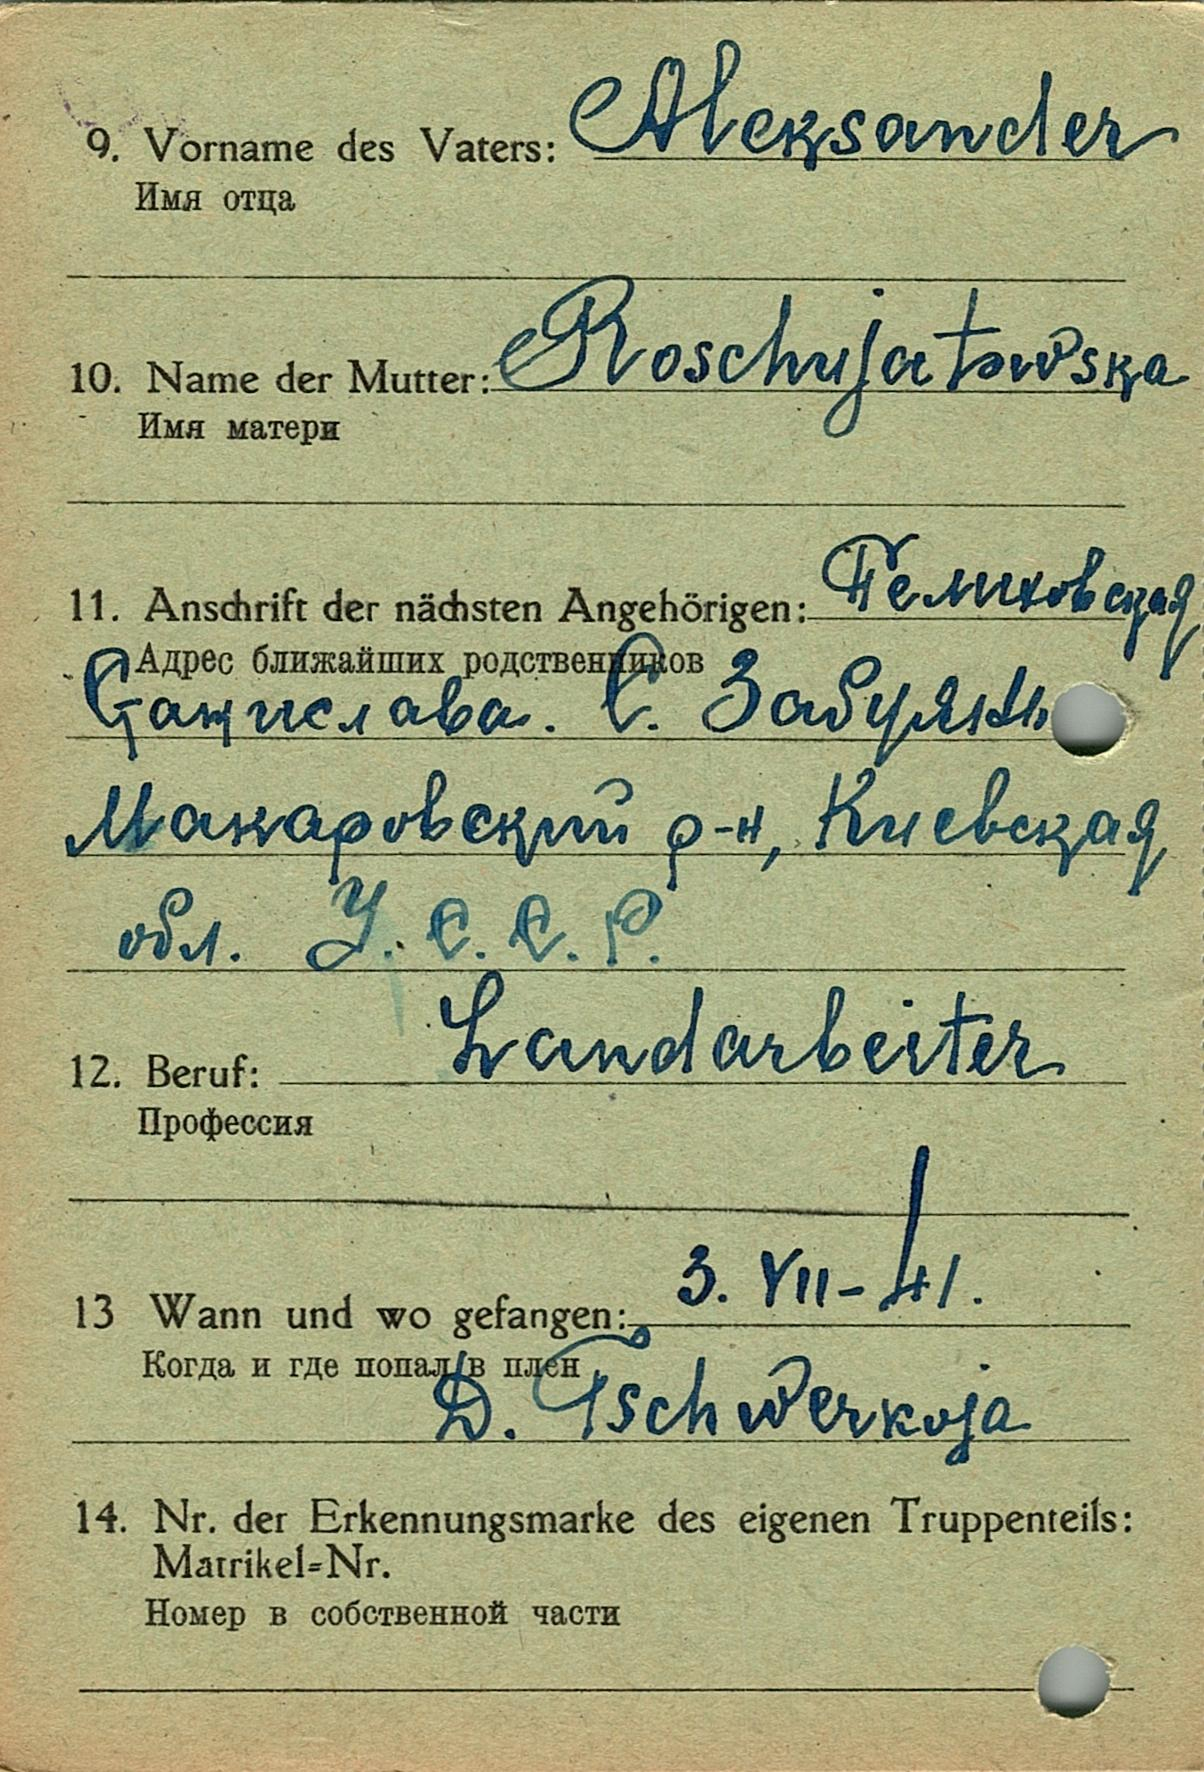 9. Vorname des Vaters: Aleksander
Имя отца
10. Name der Mutter: Roschujatowska
Имя матери
11. Anschrift der nächsten Angehörigen: Гелиховская
Адрес ближайших родственников
Станислава. С. Забуянь
Макаровский р-н, Киевская
обл. У. С. С. Р.
12. Beruf: Landarbeiter
Профессия
13 Wann und wo gefangen: 3. VII-41.
Когда и где попал в плен
D. Tschwerkoja
14. Nr. der Erkennungsmarke des eigenen Truppenteils:
Matrikel=Nr.
Номер в собственной части